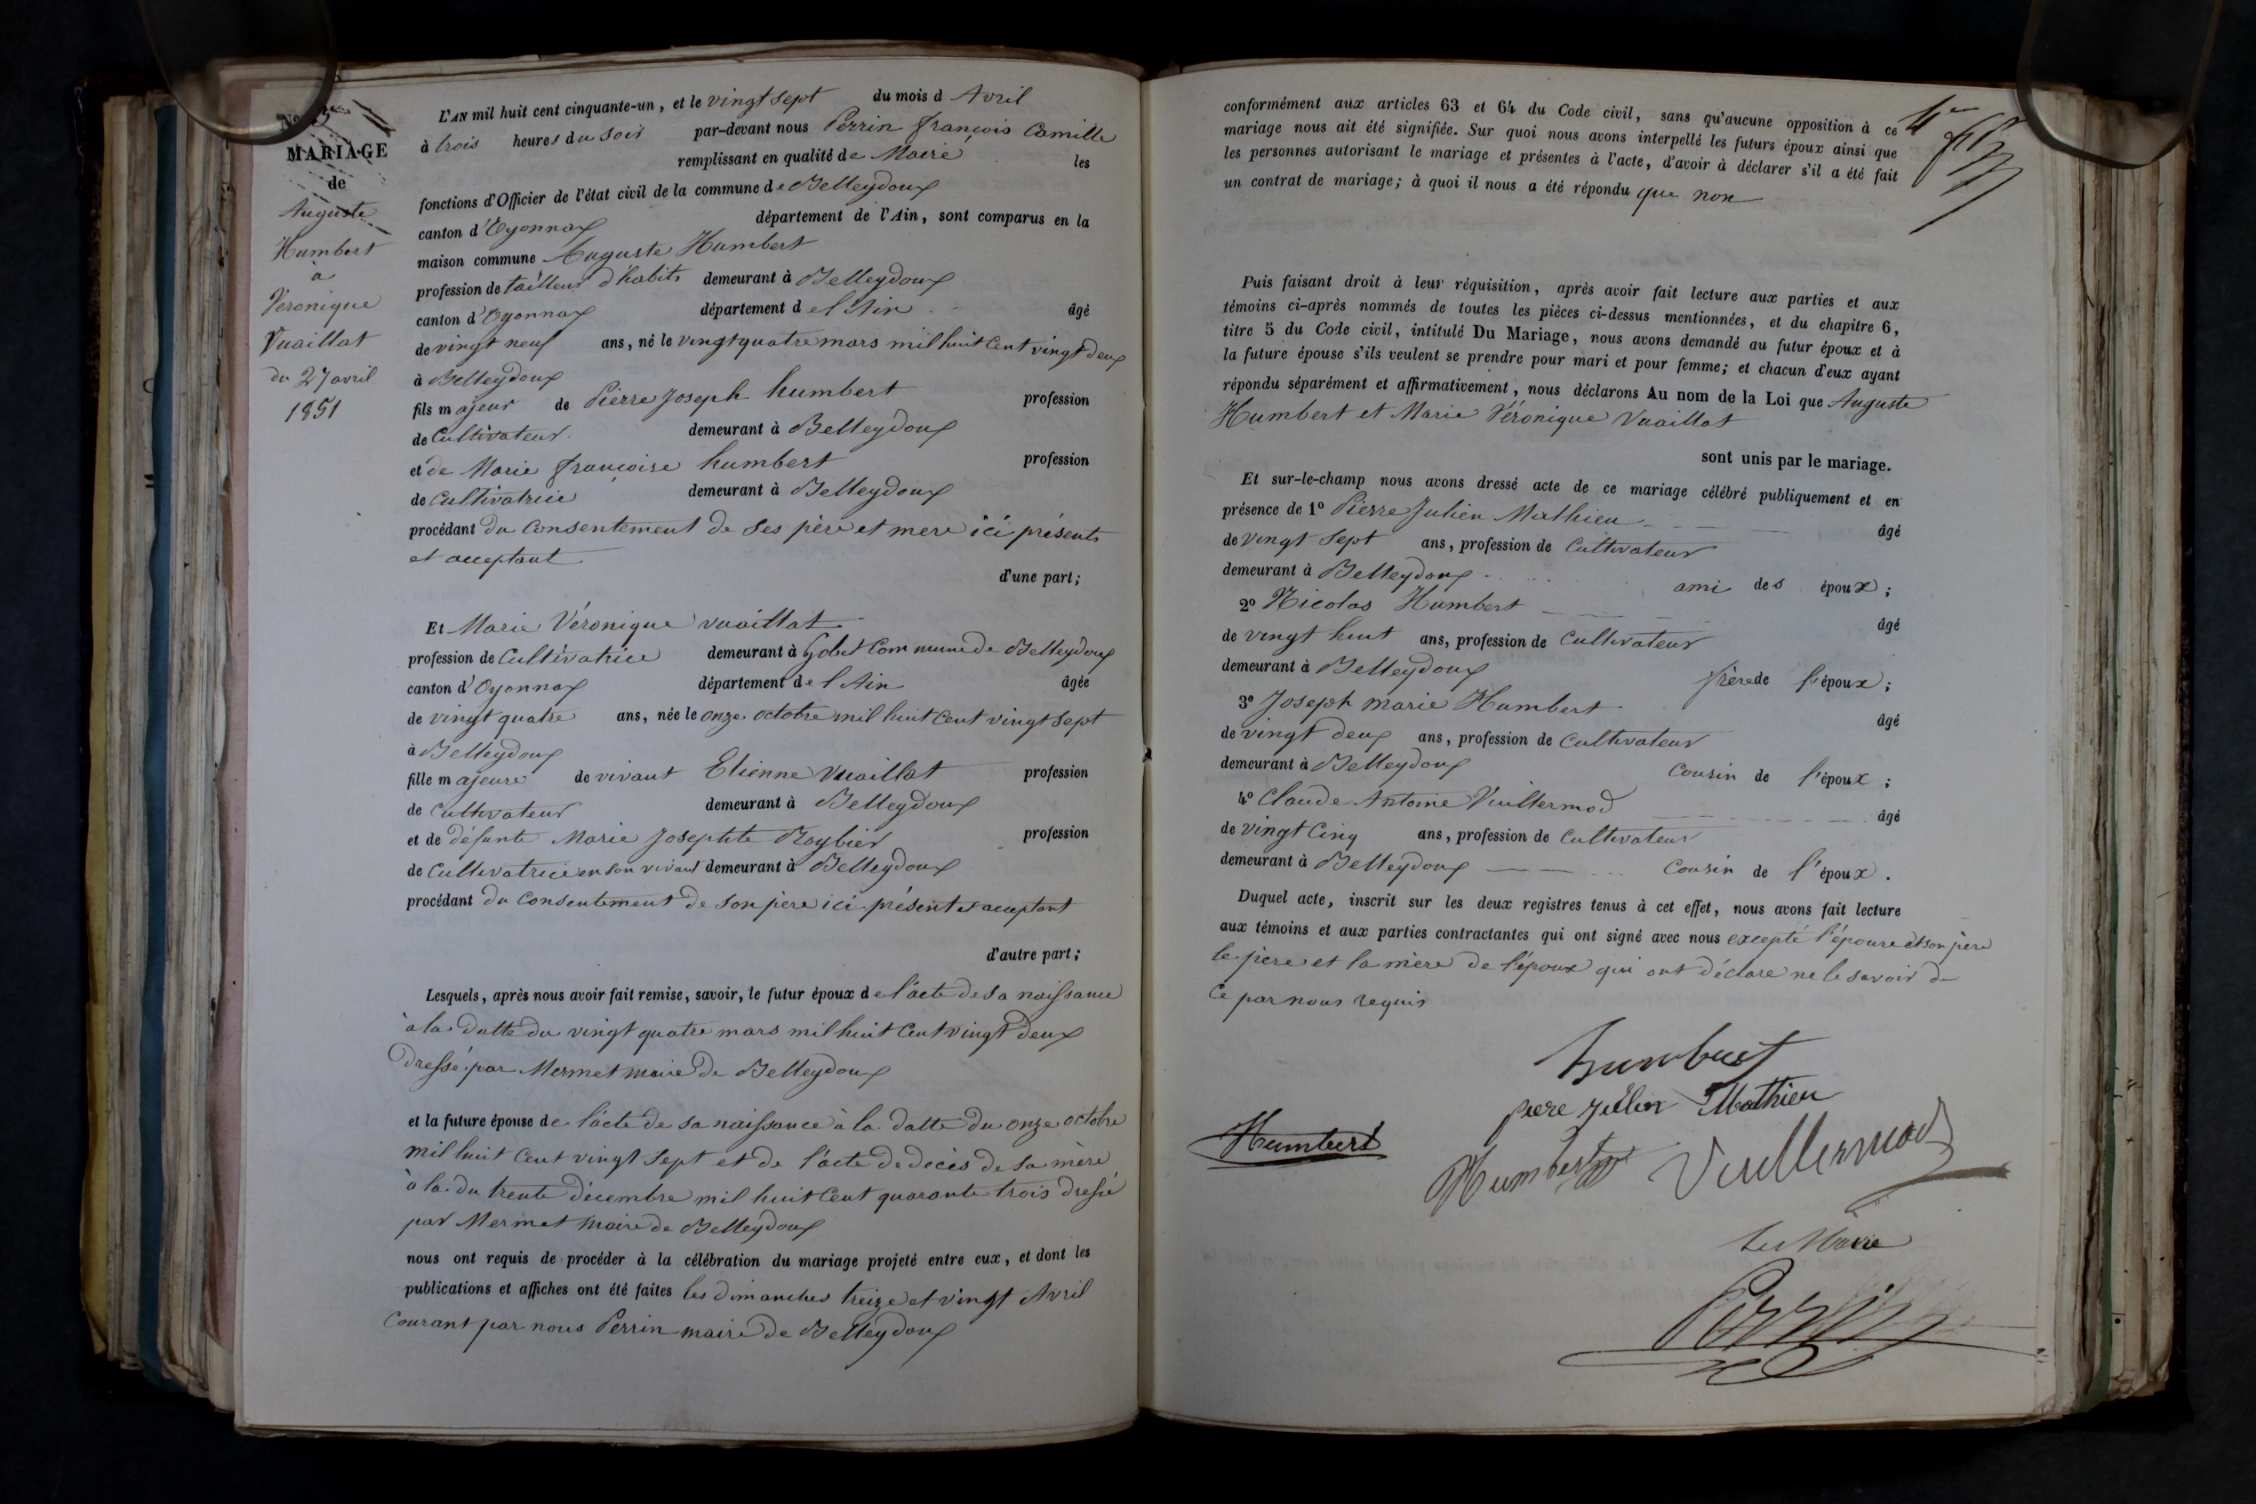 MARIAGE
de
Auguste
Humbert
à
Véronique
Vuaillat
du 27 avril
1851
L'AN mil huit cent cinquante-un, et le vingt sept du mois d Avril
à trois heures du soir par-devant nous Perrin françois Camille
remplissant en qualité de Maire les
fonctions d'Officier de l'état civil de la commune de Belleydoux
canton d'Oyonnax département de l'Ain, sont comparus en la
maison commune Auguste Humbert
profession de tailleur d'habits demeurant à Belleydoux
canton d'Oyonnax département de l'Ain âgé
de vingt neuf ans, né le vingt quatre mars mil huit cent vingt deux
à Belleydoux
fils majeur de Pierre Joseph humbert profession
de Cultivateur demeurant à Belleydoux
et de Marie françoise humbert profession
de Cultivatrice demeurant à Belleydoux
procédant du consentement de ses père et mere ici présents
et acceptant
d'une part;
Et Marie Véronique vuaillat
profession de Cultivatrice demeurant à Gobet Commune de Belleydoux
canton d'Oyonnax département de l'Ain âgée
de vingt quatre ans, née le onze octobre mil huit cent vingt sept
à Belleydoux
fille majeure de vivant Etienne Vuaillat profession
de Cultivateur demeurant à Belleydoux
et de défunte Marie Josephte Roybier profession
de Cultivatrice en son vivant demeurant à Belleydoux
procédant du consentement de son père ici présent et acceptant
d'autre part;
Lesquels, après nous avoir fait remise, savoir, le futur époux de l'acte de sa naissance
à la datte du vingt quatre mars mil huit cent vingt deux
dressé par Mermet maire de Belleydoux
et la future épouse de l'acte de sa naissance à la datte du onze octobre
mil huit cent vingt sept et de l'acte de decès de sa mère
à la du trente décembre mil huit cent quarante trois dressé
par Mermet maire de Belleydoux
nous ont requis de procéder à la célébration du mariage projeté entre eux, et dont les
publications et affiches ont été faites les dimanches treize et vingt Avril
Courant par nous Perrin maire de Belleydoux
conformément aux articles 63 et 64 du Code civil, sans qu'aucune opposition à ce
mariage nous ait été signifiée. Sur quoi nous avons interpellé les futurs époux ainsi que
les personnes autorisant le mariage et présentes à l'acte, d'avoir à déclarer s'il a été fait
un contrat de mariage; à quoi il nous a été répondu que non
Puis faisant droit à leur réquisition, après avoir fait lecture aux parties et aux
témoins ci-après nommés de toutes les pièces ci-dessus mentionnées, et du chapitre 6,
titre 5 du Code civil, intitulé Du Mariage, nous avons demandé au futur époux et à
la future épouse s'ils veulent se prendre pour mari et pour femme; et chacun d'eux ayant
répondu séparément et affirmativement, nous déclarons Au nom de la Loi que Auguste
Humbert et Marie Véronique Vuaillat
sont unis par le mariage.
Et sur-le-champ nous avons dressé acte de ce mariage célébré publiquement et en
présence de 1° Pierre Julien Mathieu âgé
de vingt sept ans, profession de Cultivateur
demeurant à Belleydoux ami des époux;
2° Nicolas Humbert âgé
de vingt huit ans, profession de Cultivateur
demeurant à Belleydoux frère de l'époux;
3° Joseph marie Humbert âgé
de vingt deux ans, profession de Cultivateur
demeurant à Belleydoux Cousin de l'époux;
4° Claude Antoine Vuillermod âgé
de vingt Cinq ans, profession de Cultivateur
demeurant à Belleydoux Cousin de l'époux.
Duquel acte, inscrit sur les deux registres tenus à cet effet, nous avons fait lecture
aux témoins et aux parties contractantes qui ont signé avec nous excepté l'épouse et son père
le père et la mère de l'époux qui ont déclaré ne le savoir de
Ce par nous requis
humbert
piere julien Mathieu
Humbert
Humbert Vuillermod
Le Maire
Perrin